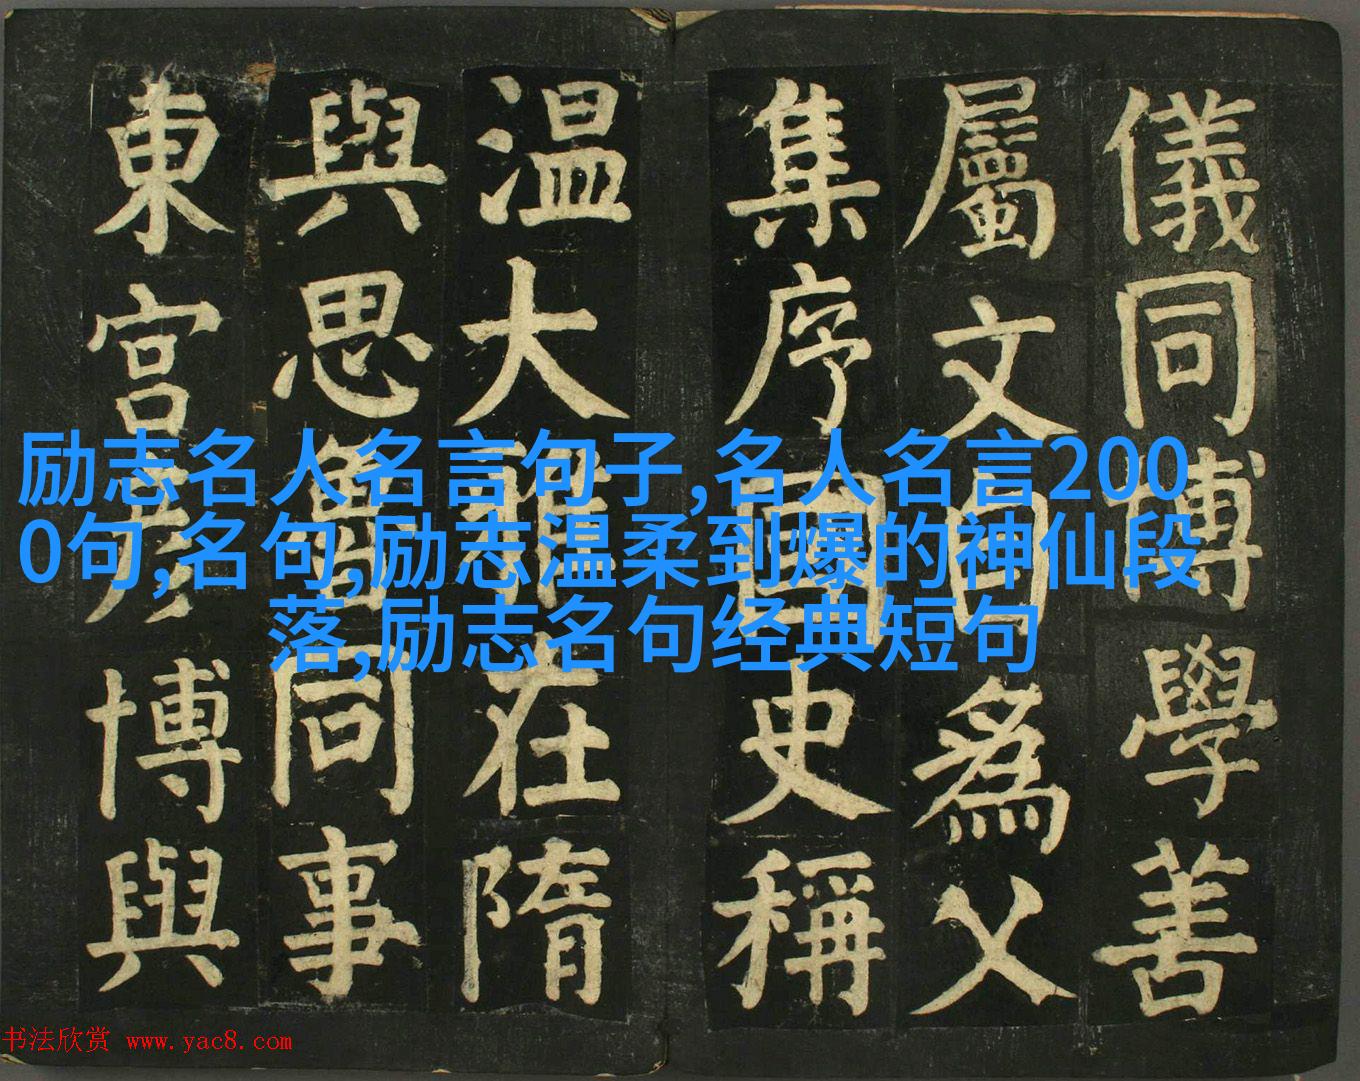 儀同博學善
屬文自為父
集序國史稱
温大雅在隋
與思魯同事
東宮彦博與
励志名人名言句子,名人名言200
0句,名句,励志温柔到爆的神仙段
落,励志名句经典短句
书法欣赏 www.yac8.com